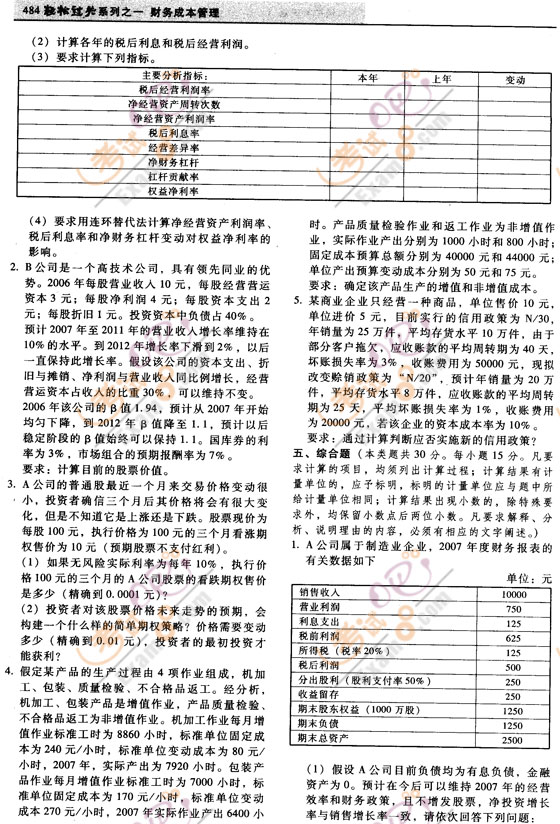 484 轻松过关系列之一 财务成本管理
(2) 计算各年的税后利息和税后经营利润。
(3) 要求计算下列指标。
主要分析指标: 本年 上年 变动
税后经营利润率
净经营资产周转次数
净经营资产利润率
税后利息率
经营差异率
净财务杠杆
杠杆贡献率
权益净利率
(4) 要求用连环替代法计算净经营资产利润率、
税后利息率和净财务杠杆变动对权益净利率的
影响。
2. B公司是一个高技术公司，具有领先同业的优
势。2006年每股营业收入10元，每股经营营运
资本3元；每股净利润4元；每股资本支出2
元；每股折旧1元。投资资本中负债占40%。
预计2007年至2011年的营业收入增长率维持在
10%的水平。到2012年增长率下滑到2%，以后
一直保持此增长率。假设该公司的资本支出、折
旧与摊销、净利润与营业收入同比例增长，经营
营运资本占收入的比重30%，可以维持不变。
2006年该公司的β值1.94，预计从2007年开始
均匀下降，到2012年β值降至1.1，预计以后
稳定阶段的β值始终可以保持1.1。国库券的利
率为3%，市场组合的预期报酬率为7%。
要求：计算目前的股票价值。
3. A公司的普通股最近一个月来交易价格变动很
小，投资者确信三个月后其价格将会有很大变
化，但是不知道它是上涨还是下跌。股票现价为
每股100元，执行价格为100元的三个月看涨期
权售价为10元（预期股票不支付红利）。
(1) 如果无风险实际利率为每年10%，执行价
格100元的三个月的A公司股票的看跌期权售价
是多少（精确到0.0001元）?
(2) 投资者对该股票价格未来走势的预期，会
构建一个什么样的简单期权策略？价格需要变动
多少（精确到0.01元），投资者的最初投资才
能获利？
4. 假定某产品的生产过程由4项作业组成，机加
工、包装、质量检验、不合格品返工。经分析，
机加工、包装产品是增值作业，产品质量检验、
不合格品返工为非增值作业。机加工作业每月增
值作业标准工时为8860小时，标准单位固定成
本为240元/小时，标准单位变动成本为80元/
小时，2007年，实际产出为7920小时。包装产
品作业每月增值作业标准工时为7000小时，标
准单位固定成本为170元/小时，标准单位变动
成本270元/小时，2007年实际作业产出6400小
时。产品质量检验作业和返工作业为非增值作
业，实际作业产出分别为1000小时和800小时；
固定成本预算总额分别为40000元和44000元；
单位产出预算变动成本分别为50元和75元。
要求：确定该产品生产的增值和非增值成本。
5. 某商业企业只经营一种商品，单位售价10元，
单位进价5元，目前实行的信用政策为N/30，
年销量为25万件，平均存货水平10万件，由于
部分客户拖欠，应收账款的平均周转期为40天，
坏账损失率为3%，收账费用为50000元，现拟
改变赊销政策为“N/20”，预计年销量为20万
件，平均存货水平8万件，应收账款的平均周转
期为25天，平均坏账损失率为1%，收账费用
为20000元，若该企业的资本成本为10%。
要求：通过计算判断应否实施新的信用政策？
五、综合题（本类题共30分。每小题15分。凡要
求计算的项目，均须列出计算过程；计算结果有计
量单位的，应予标明，标明的计量单位应与题中所
给计量单位相同；计算结果出现小数的，除特殊要
求外，均保留小数点后两位小数。凡要求解释、分
析、说明理由的内容，必须有相应的文字阐述。）
1. A公司属于制造业企业，2007年度财务报表的
有关数据如下
单位：元
销售收入 10000
营业利润 750
利息支出 125
税前利润 625
所得税（税率20%） 125
税后利润 500
分出股利（股利支付率50%） 250
收益留存 250
期末股东权益（1000万股） 1250
期末负债 1250
期末总资产 2500
(1) 假设A公司目前负债均为有息负债，金融
资产为0。预计在今后可以维持2007年的经营
效率和财务政策，且不增发股票，净投资增长
率与销售增长率一致，请依次回答下列问题：
考试
Exam8.com